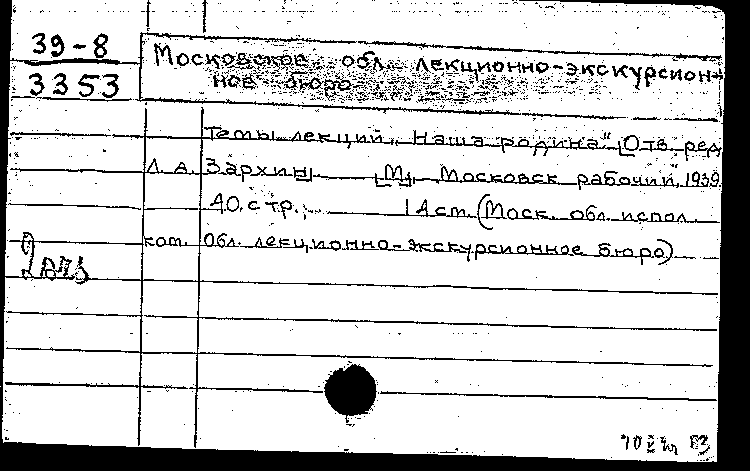 39-8
3353
Московское обл. лекционно-экскурсион-
ное бюро
Темы лекций „Наша родина" [Отв. ред.
Л. А. Зархин] [М], Московск рабочий, 1939.
40. стр.; 14 ст. (Моск. обл. испол.
ком. Обл. лекционно-экскурсионное бюро)